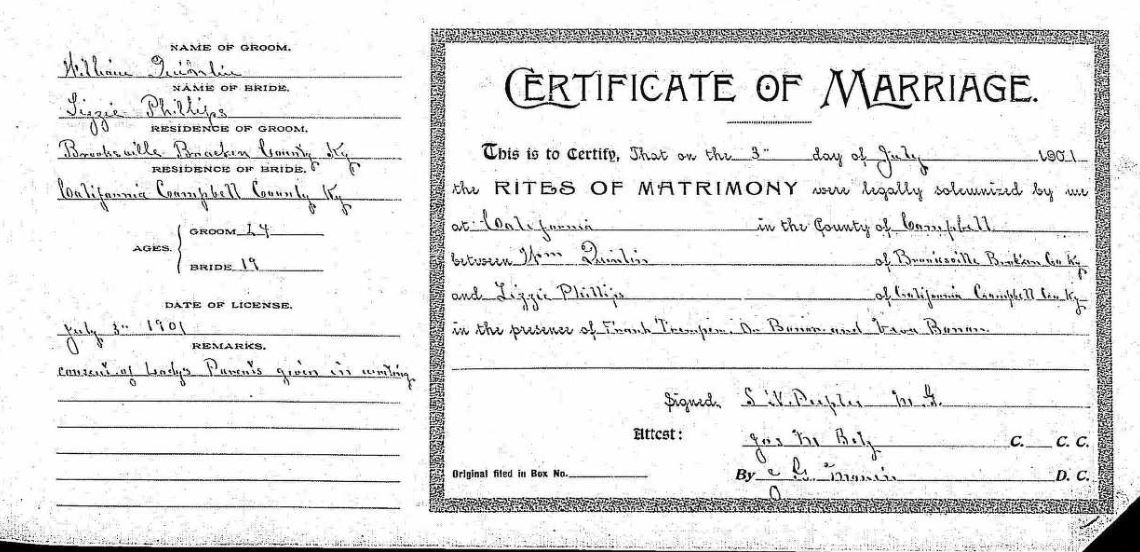 NAME OF GROOM.
William Quinlin
NAME OF BRIDE.
Lizzie Phillips
RESIDENCE OF GROOM.
Brooksville Bracken County Ky
RESIDENCE OF BRIDE.
California Campbell County Ky
AGES. GROOM 24
BRIDE 19
DATE OF LICENSE.
July 3" 1901
REMARKS.
consent of Ladys Parents given in writing
CERTIFICATE OF MARRIAGE.
This is to Certify, That on the 3" day of July 1901
the RITES OF MATRIMONY were legally solemnized by me
at California in the County of Campbell
between Wm Quinlin of Brooksville Bracken Co Ky
and Lizzie Phillips of California Campbell Co Ky
in the presence of Frank and
Signed, Peoples M.G.
Attest: Jas M C. C. C.
By D. C.
Original filed in Box No.